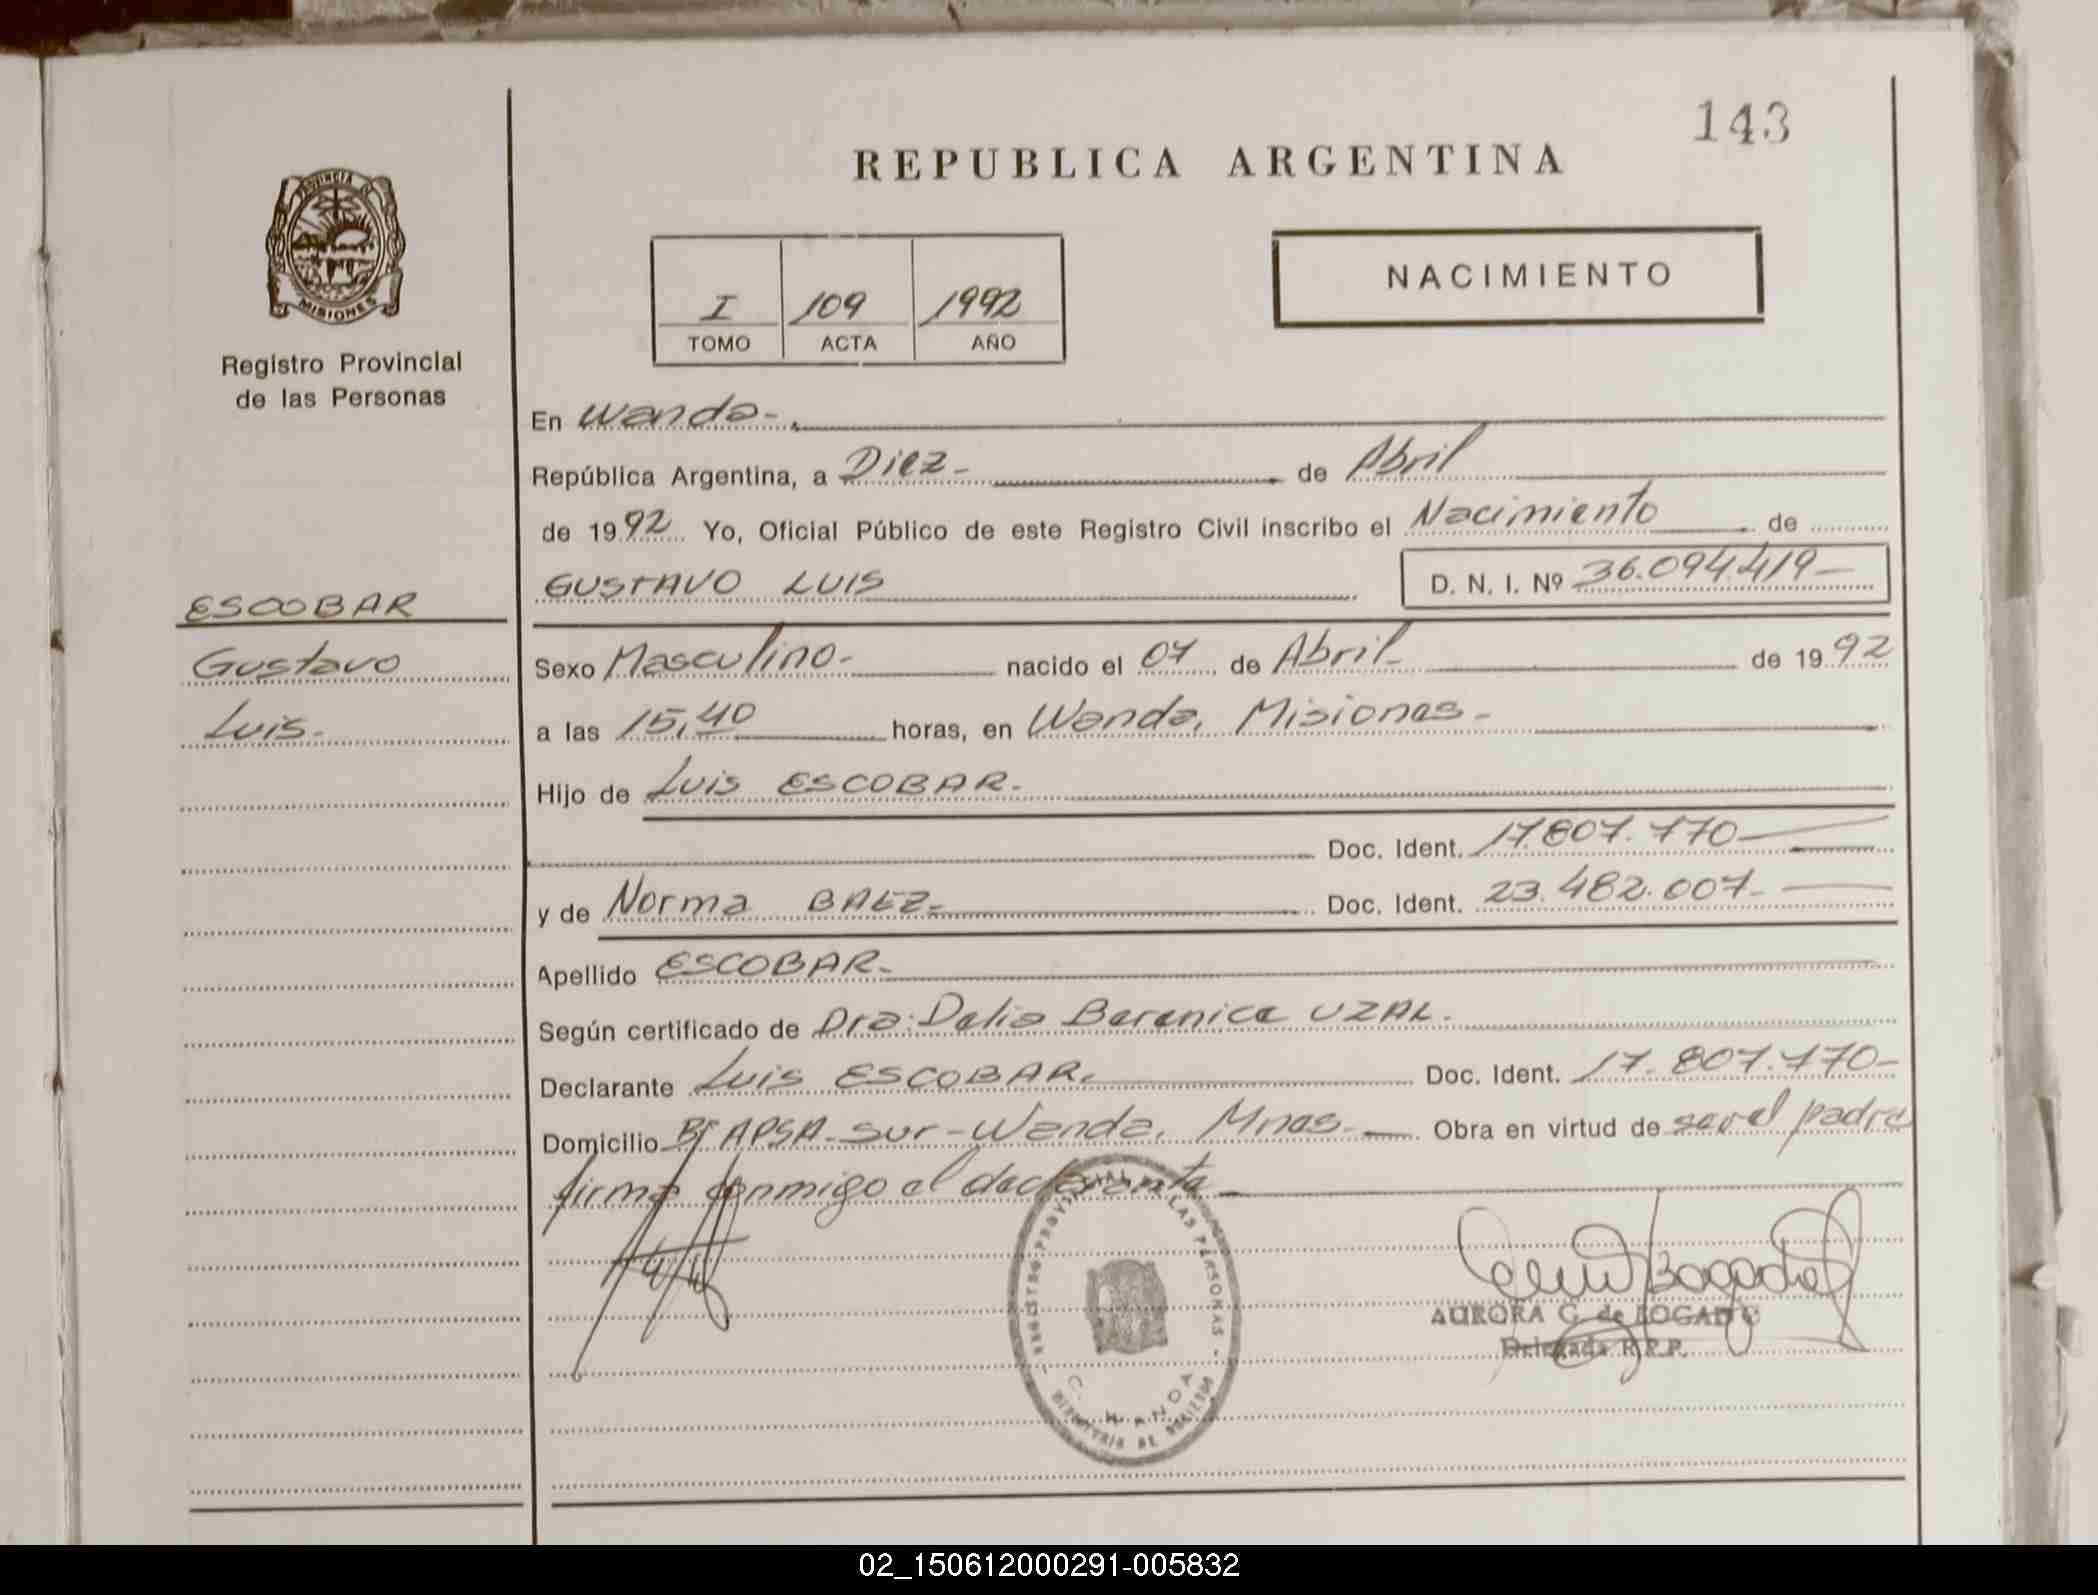 143
REPUBLICA ARGENTINA
PROVINCIA DE
MISIONES
Registro Provincial
de las Personas
I 109 1992
TOMO ACTA AÑO
NACIMIENTO
En Wanda-
República Argentina, a Diez- de Abril
de 1992 Yo, Oficial Público de este Registro Civil inscribo el Nacimiento de
GUSTAVO LUIS D. N. I. Nº 36.094.419-
ESCOBAR
Gustavo
Luis-
Sexo Masculino- nacido el 07 de Abril- de 1992
a las 15,40 horas, en Wanda, Misiones-
Hijo de Luis ESCOBAR-
Doc. Ident. 17.807.770-
y de Norma BAEZ- Doc. Ident. 23.482.007-
Apellido ESCOBAR-
Según certificado de Dra. Delia Berenice UZAL.
Declarante Luis ESCOBAR- Doc. Ident. 17.807.770-
Domicilio Bº APSA-sur-Wanda, Mnes.- Obra en virtud de ser el padre
firma conmigo el declarante-
REGISTRO PROVINCIAL DE LAS PERSONAS
WANDA
AURORA G. de BOGADO
Delegada R.P.P.
02_150612000291-005832